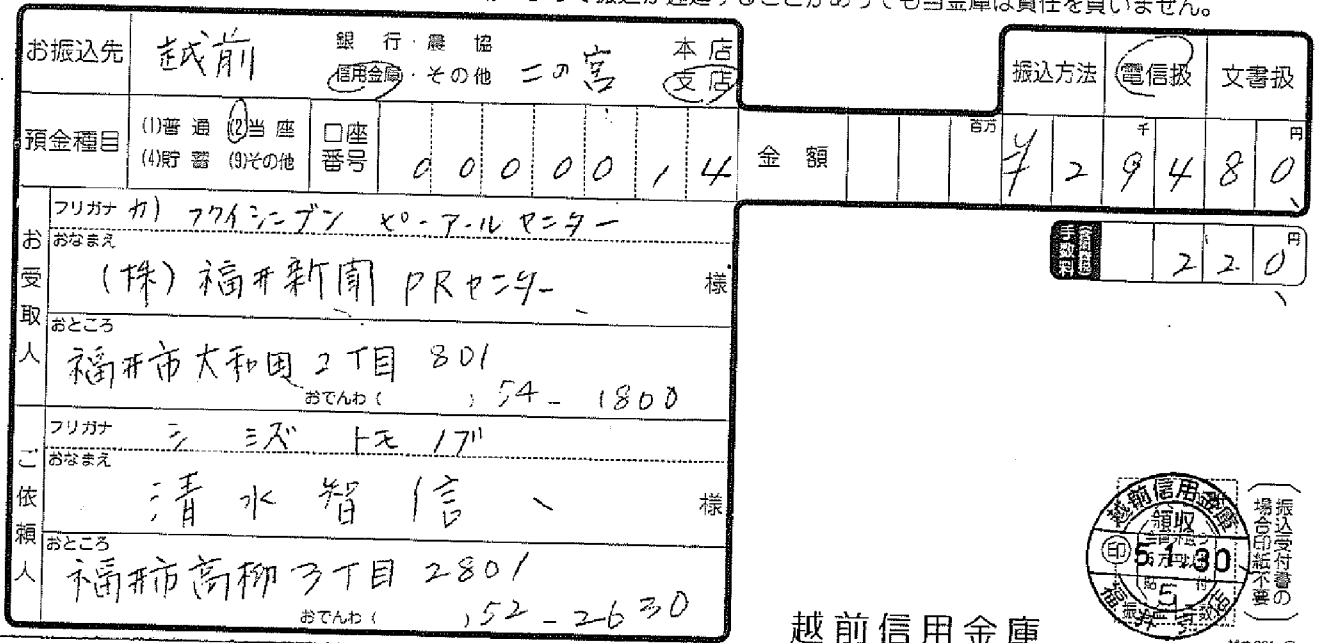 振込が遅延することがあっても当金庫は責任を負いません。
お振込先 越前 銀行・農協 信用金庫・その他 二の宮 本店 支店
振込方法 電信扱 文書扱
預金種目 (1)普通 (2)当座 (4)貯蓄 (9)その他 口座番号 0 0 0 0 0 1 4 金額 百万 千 円 ¥ 2 9 4 8 0
手数料 2 2 0 円
お受取人
フリガナ カ) フクイシンブン ピーアールセンター
おなまえ
(株)福井新聞PRセンター 様
おところ
福井市大和田2丁目801
おでんわ ( ) 54-1800
ご依頼人
フリガナ シミズ トモノブ
おなまえ
清水智信 様
おところ
福井市高柳3丁目2801
おでんわ ( ) 52-2630
越前信用金庫
越前信用金庫
領収
印 5.1.30
5
振込受付書の
場合印紙不要